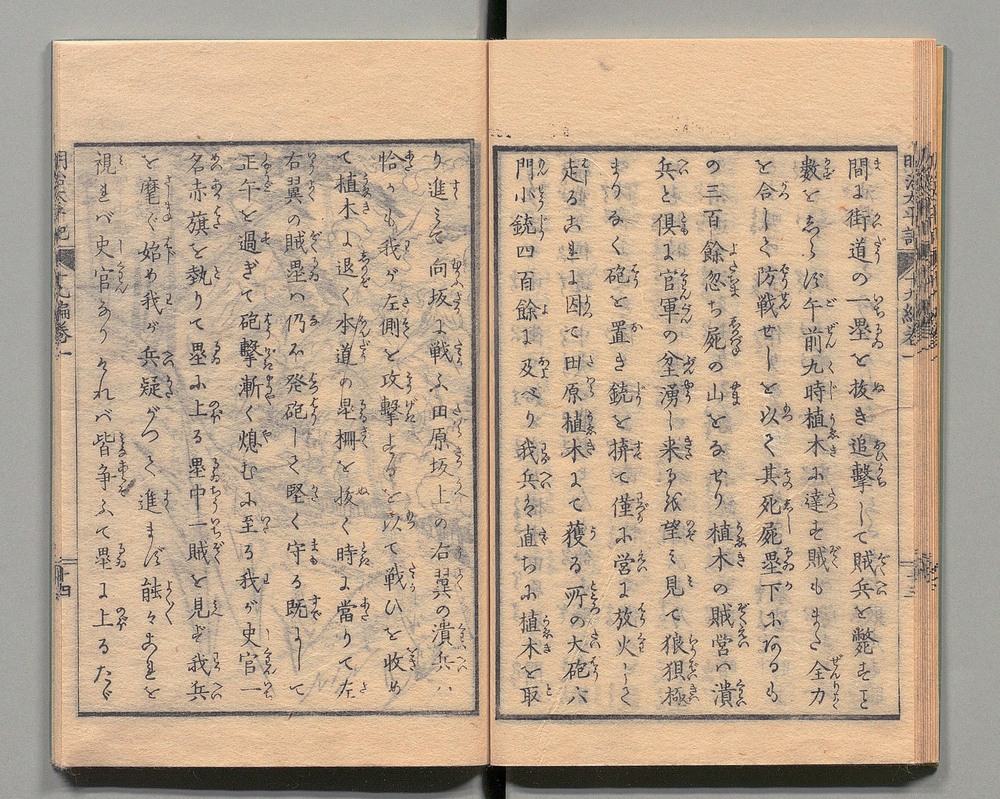 間に街道の一塁を抜き追撃して賊兵を斃すこと
数をしらず午前九時植木に達す賊もまた全力
を合して防戦せしを以て其死屍塁下にあるも
の三百餘忽ち屍の山をなせり植木の賊営ハ潰
兵と倶に官軍の坌湧し来るを望み見て狼狽極
まりなく砲を置き銃を捨て僅に営に放火して
走るこれに因て田原植木にて獲る所の大砲六
門小銃四百餘に及べり我兵ハ直ちに植木を取
り進ミて向坂に戦ふ田原坂上の右翼の潰兵ハ
恰かも我が左側を攻撃するを以て戦ひを収め
て植木に退く本道の塁柵を抜く時に當りて左
右翼の賊塁ハ仍不発砲して堅く守る既にして
正午を過ぎて砲撃漸く熄むに至る我が史官一
名赤旗を執りて塁に上る塁中一賊を見ず我兵
を麾ぐ始め我が兵疑がつて進まず熟々これを
視れバ史官ありけれバ皆争ふて塁に上るたゞ
明治太平記
十九編巻一
十四